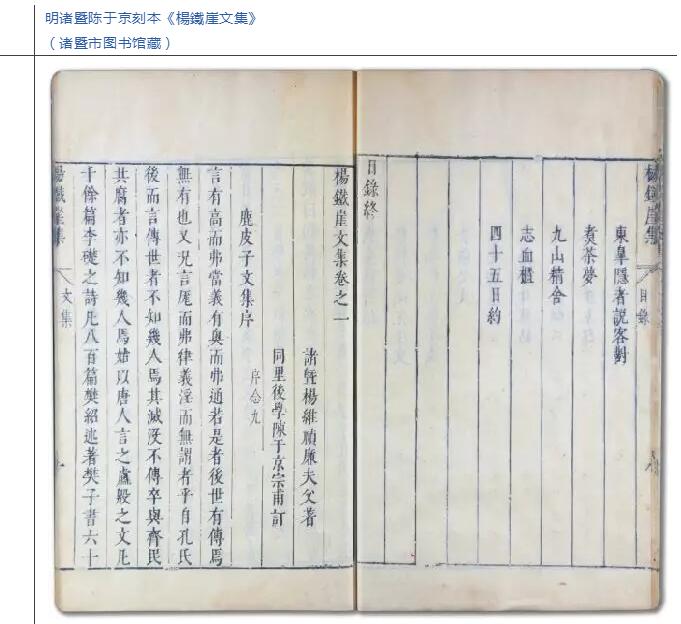 明诸暨陈于京刻本《楊鐵崖文集》
（诸暨市图书馆藏）
楊鐵崖集
目錄
東皐隱者說客對
煑茶夢
九山精舍
志血櫃
四十五日約
目錄終
楊鐵崖文集卷之一
諸暨楊維禎廉夫父著
同里後學陳于京宗甫訂
鹿皮子文集序
言有高而弗當義有奥而弗通若是者後世有傳焉
無有也又况言厖而弗律義淫而無謂者乎自孔氏
後而言傳世者不知幾人焉其滅没不傳卒與齊民
共腐者亦不知幾人焉姑以唐人言之盧殷之文凡
千餘篇李礎之詩凡八百篇樊紹述著樊子書六十
楊鐵崖集
文集